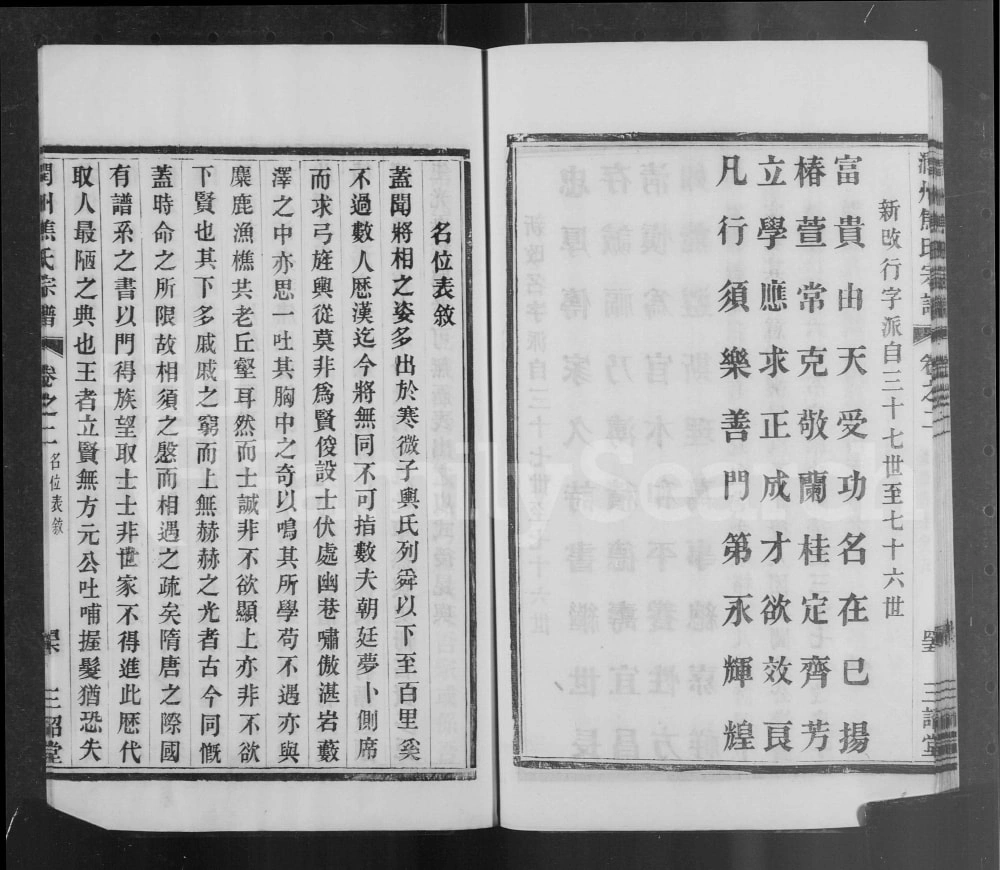 新改行字派自三十七世至七十六世
富貴由天受功名在已揚
椿萱常克敬蘭桂定齊芳
立學應求正成才欲效良
凡行須樂善門第永輝煌
三詔堂
名位表敘
蓋聞將相之姿多出於寒微子輿氏列舜以下至百里奚
不過數人歷漢迄今將無同不可指數夫朝廷夢卜側席
而求弓旌興從莫非爲賢俊設士伏處幽巷嘯傲湛岩藪
澤之中亦思一吐其胸中之奇以鳴其所學苟不遇亦與
麋鹿漁樵共老丘壑耳然而士誠非不欲顯上亦非不欲
下賢也其下多戚戚之窮而上無赫赫之光者古今同慨
蓋時命之所限故相須之慇而相遇之疏矣隋唐之際國
有譜系之書以門得族望取士士非世家不得進此歷代
取人最陋之典也王者立賢無方元公吐哺握髮猶恐失
潤州焦氏宗譜 卷之二 名位表敘 三詔堂
FamilySearch